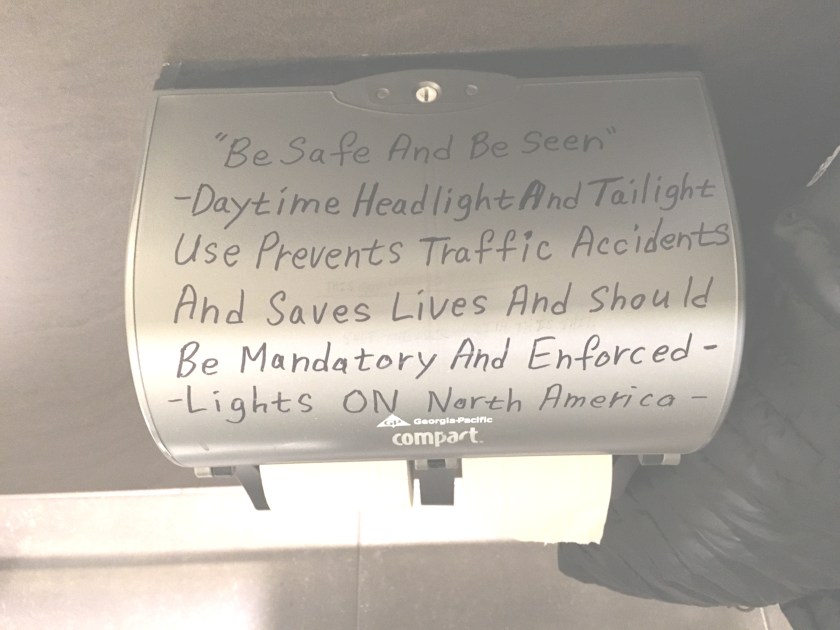 "Be Safe And Be Seen"
-Daytime Headlight And Tailight
Use Prevents Traffic Accidents
And Saves Lives And Should
Be Mandatory And Enforced-
-Lights ON North America-
GP Georgia-Pacific
compact.